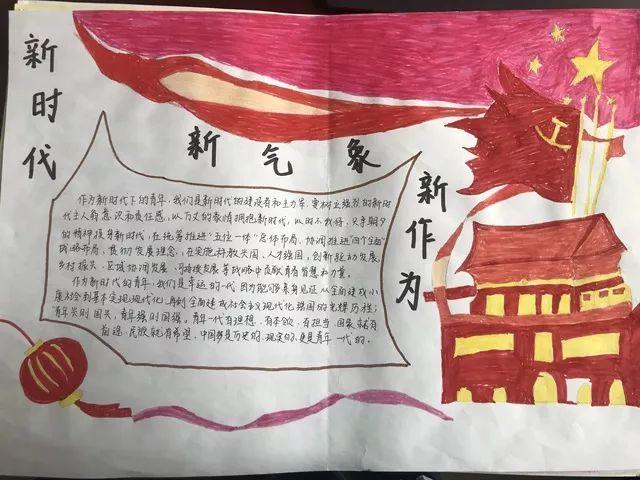 新时代
新气象
新作为
作为新时代下的青年,我们是新时代的建设者和主力军,要树立强烈的新时
代主人翁意识和责任感,以万丈的豪情拥抱新时代,以时不我待,只争朝夕
的精神投身新时代,在统筹推进“五位一体”总体布局、协调推进“四个全面”
战略布局,贯彻发展理念,在实施科教兴国、人才强国,创新驱动发展
乡村振兴、区域协调发展、可持续发展等战略中贡献青春智慧和力量。
作为新时代的青年,我们是幸运的一代,因为能够亲身见证从全面建成小
康社会到基本实现现代化,再到全面建成社会主义现代化强国的光辉历程;
“青年兴则国兴,青年强则国强。青年一代有理想、有本领、有担当,国家就有
前途,民族就有希望,中国梦是历史的、现实的,更是青年一代的。